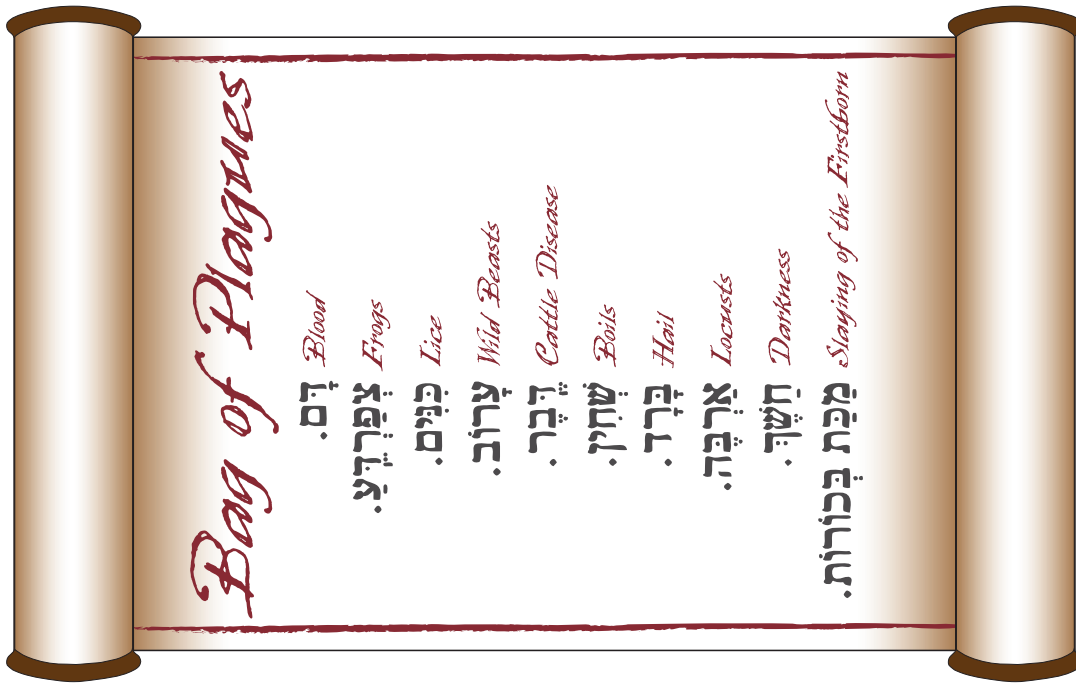 Bag of Plagues
דָּם. Blood
צְפַרְדֵּעַ. Frogs
כִּנִּים. Lice
עָרוֹב. Wild Beasts
דֶּבֶר. Cattle Disease
שְׁחִין. Boils
בָּרָד. Hail
אַרְבֶּה. Locusts
חַשֶׁךְ. Darkness
מַכַּת בְּכוֹרוֹת. Slaying of the Firstborn